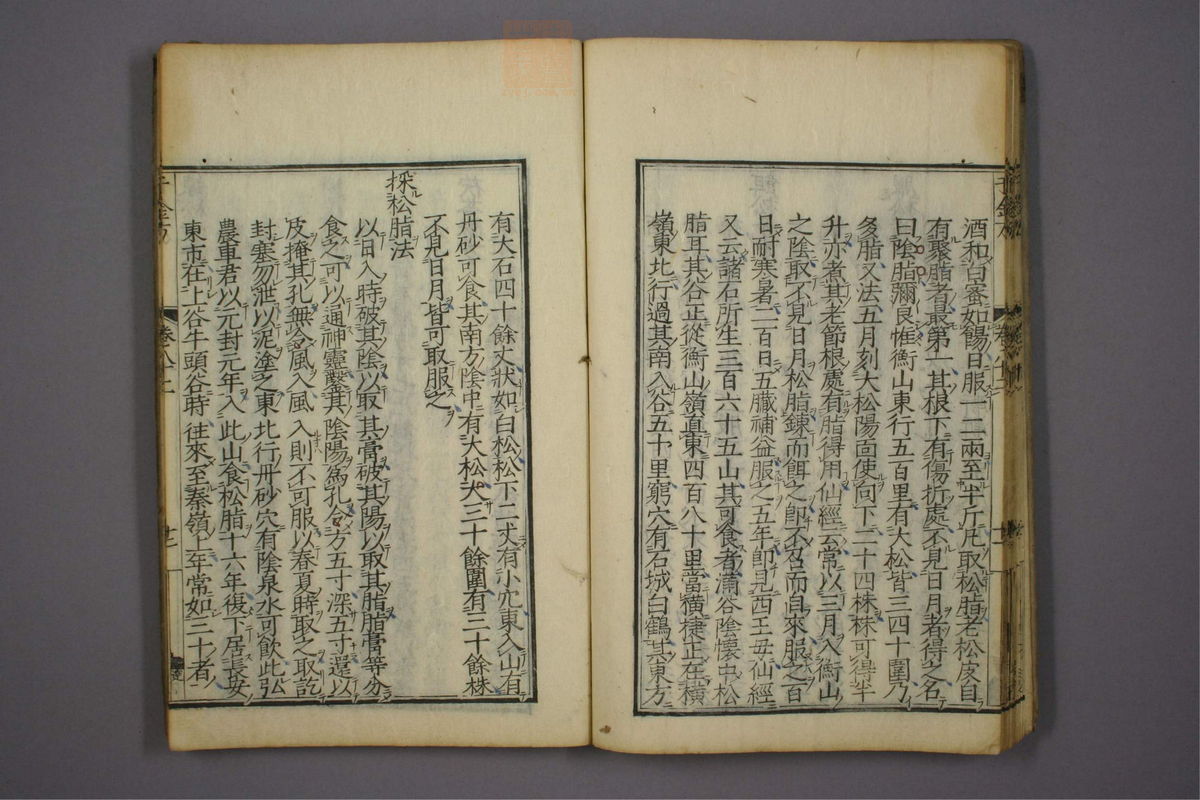 酒和白蜜如餳日服一二兩至半斤凡取松脂老松皮自
有聚脂者最第一其根下有傷折處不見日月者得之名
曰陰脂彌良惟衡山東行五百里有大松皆三四十圍乃
多脂又法五月刻大松陽面使向下二十四株株可得半
升亦煮其老節根處有脂得用仙經云常以三月入衡山
之陰取不見日月松脂鍊而餌之即不召而自來服之百
日耐寒暑二百日五臟補益服之五年即見西王母仙經
又云諸石所生三百六十五山其可食者滿谷陰懷中松
脂耳其谷正從衡山嶺直東四百八十里當橫捷正在橫
嶺東北行過其南入谷五十里窮穴有石城白鶴其東方
有大石四十餘丈狀如白松松下二丈有小穴東入山有
丹砂可食其南方陰中有大松大三十餘圍有三十餘株
不見日月皆可取服之
採松脂法
以日入時破其陰以取其膏破其陽以取其脂脂膏等分
食之可以通神靈鑿其陰陽為孔令方五寸深五寸還以
皮掩其孔無令風入風入則不可服以春夏時取之取訖
封塞勿泄以泥塗之東北行丹砂穴有陰泉水可飲此弘
農車君以元封元年入此山食松脂十六年復下居長安
東市在上谷牛頭谷時往來至秦嶺上年常如三十者
千金方
卷八十二
十二